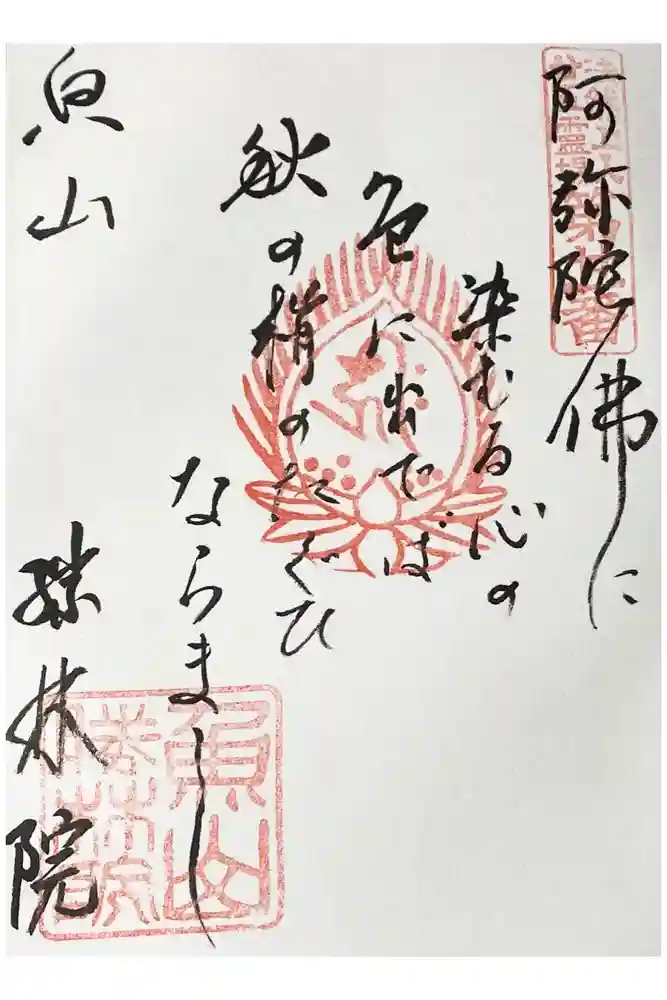 阿弥陀佛に
染むる心の
色に出では
秋の梢のたぐひ
ならまし
魚山
勝林院
魚山
勝林院